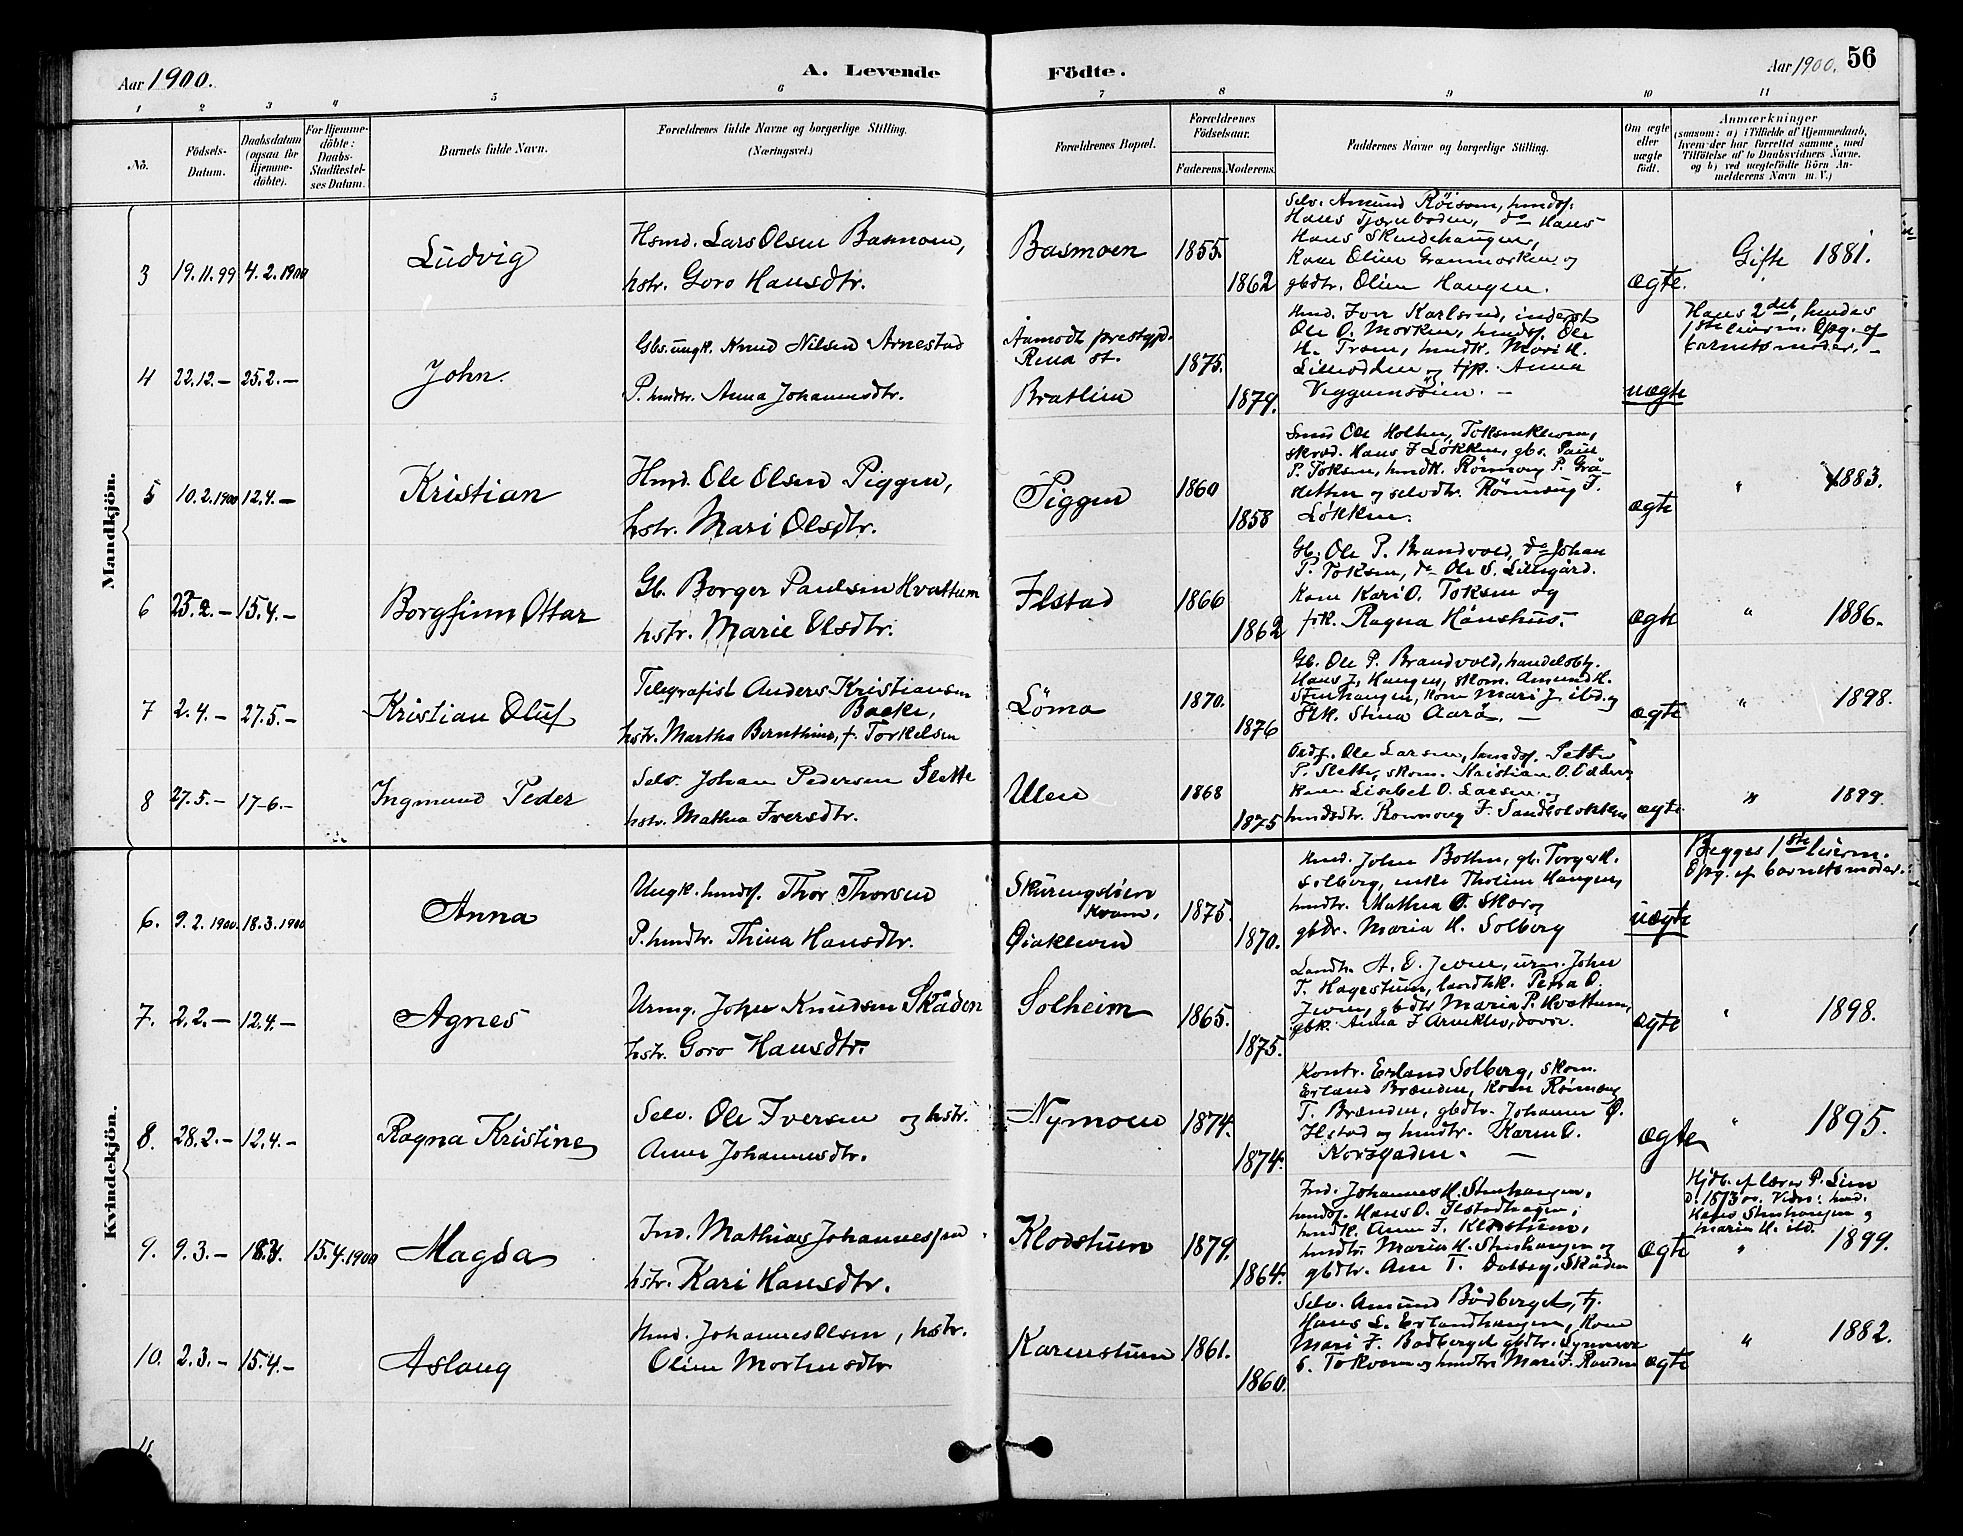 Aar 1900.
A. Levende Födte.
Aar 1900. 56
1 2 3 4 5 6 7 8 9 10 11
No.
Födsels-Datum.
Daabsdatum (ogsaa for Hjemme-döbte).
For Hjemme-döbte: Daabs-Stadfæstel-ses Datum.
Barnets fulde Navn.
Forældrenes fulde Navne og borgerlige Stilling.
(Næringsvei.)
Forældrenes Bopæl.
Forældrenes Födselsaar.
Faderens. Moderens.
Faddernes Navne og borgerlige Stilling.
Om ægte eller uægte født.
Anmærkninger
(saasom: a) i Tilfælde af Hjemmedaab,
hvem der har forrettet samme, med
Tilföielse af to Daabsvidners Navne.
og b) ved uægtefödte Börn An-
melderens Navn m. V.)
Mandkjön.
3 19.11.99 4.2.1900 Ludvig
Hsmd. Lars Olsen Basmoen,
hstr. Goro Hansdtr.
Basmoen 1855. 1862
Selv. Amund Röisom, hmdsf.
Hans Tjærnboden, do Hans
Hans Skudehaugen,
Kone Oline Granmorken og
gbdtr. Oline Haugen.
ægte. Gifte 1881.
4 22.12.— 25.2.— John.
Gbs. ungk. Knud Nilsen Arnestad
P. hmdtr. Anna Johannesdtr.
Aamodt prestgjd.
Rena st.
Bratlien
1875. 1879.
Hmd. Iver Karlsrud, inderst
Ole O. Morken, hmdsf. Ole
H. Trom, hmdk. Mari K.
Lilleodden og tjp. Anna
uægte
Hans 2det, hendes
1ste leierm. Opg. af
barnets moder.—
5 10.2.1900 12.4.— Kristian
Hmd. Ole Olsen Piggen,
hstr. Mari Olsdtr.
Piggen 1860 1858
Ole Holten, Toksenkleven,
skræd. Hans J Løkken, gbs. Paul
P. Toksen, hmdk. Rönnoug P. Grå-
sletten og selvdtr. Rönnoug J.
Løkken.
ægte " 1883.
6 25.2.— 15.4.— Borgfinn Ottar
Gb. Borger Paulsen Hvattum
hstr. Marie Olsdtr.
Ilstad 1866 1862
Gb. Ole P. Brandvold, do Johan
P. Toksen, do Ole S. Lillegård.
Kone Kari O. Toksen og
frk. Ragna Hånshus.
ægte " 1886.
7 2.4.— 27.5.— Kristian Oluf
Telegrafist Anders Kristiansen
Bakke,
hstr. Martha Bernthine, f. Torkelsen
Löma 1870. 1876
Gb. Ole P. Brandvold, handelsbtj.
Hans J. Haugen, skom. Amund H.
Stenhaugen, kone Mari J. ibd. og
Frk. Stina Aarö. —
ægte " 1898.
8 27.5.— 17-6.— Ingmund Peder
Selv. Johan Pedersen Slette
hstr. Mathea Iversdtr.
Ulen 1868 1875
Ole Larsen, hmdsf. Petter
P. Slette, skom. Kristian O. Odden,
Kone Lisbet O. Larsen og
hmdsdtr. Rønnoug J. Sandbolokken
ægte " 1899.
Kvindekjön.
6. 9.2.1900. 18.3.1900 Anna
Ungk. hmdsf. Thor Thorsen
P. hmdtr. Thina Hansdtr.
Skuringslöien
Kvam.
Öiakleven
1875. 1870.
Hmd. John Botten, gb. Torger H.
Solberg, enke Tholine Haugen,
hmdtr. Mathea O. Skar og
gbdr. Maria H. Solberg
uægte
Begges 1ste leierm.
Opg. af barnets moder.
7. 2.2.— 12.4.— Agnes
Urmg. John Knudsen Skåden
hstr. Goro Hansdtr.
Solheim 1865. 1875.
Landh. A. O. Jeven, urm. John
T. Hagestuen, landhk. Petra O.
Jeven, gbdtr Maria P. Hvattum,
gbk. Anna J Arneklev, Dovre.
ægte " 1898.
8. 28.2.— 12.4.— Ragna Kristine
Selv. Ole Iversen og hstr.
Anne Johannesdtr.
Nymoen 1874. 1874.
Kontr. Erland Solberg, skom.
Erland Brænden, kone Rönnoug
T. Brænden, gbdtr. Johanne O.
Ilstad og hmdtr. Karen O.
Korsgaden. —
ægte " 1895.
9. 9.3.— 18.3. 15.4.1900 Magda
Ind. Mathias Johannessen
hstr. Kari Hansdtr.
Klodstuen 1879. 1864.
Ind. Johannes H. Stenhaugen,
hmdsf. Hans O. Ilstadhagen,
hmdk. Anne J. Klodstuen,
hmdtr. Maria H. Stenhaugen og
gbdtr. Ane T. Skåden
ægte
Hjdb. af lærer P. Lien
Vidn: hmd.
Hans Stenhaugen og
Maria H. ibd.
" 1899.
10. 2.3.— 15.4.— Aslaug
Hmd. Johannes Olsen, hstr.
Oline Mortensdtr
Karenstuen 1861. 1860.
Selv. Amund Bådberget, tj.
Hans L. Erlandhaugen, Kone
Mari J. Bådberget gbdtr. Synnøve
S. Tokvam og hmdtr Mari J. Randen
ægte " 1882.
11.